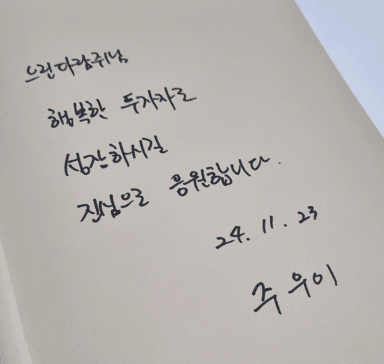 느린다람쥐님,
행복한 투자자로
성장하시길
진심으로 응원합니다.
24. 11. 23
주우이